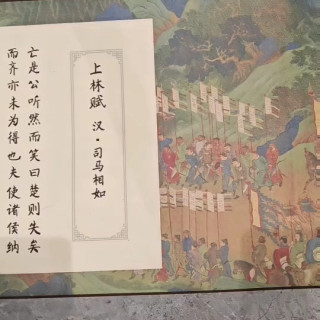 上林赋 汉·司马相如
亡是公听然而笑曰楚则失矣
而齐亦未为得也夫使诸侯纳